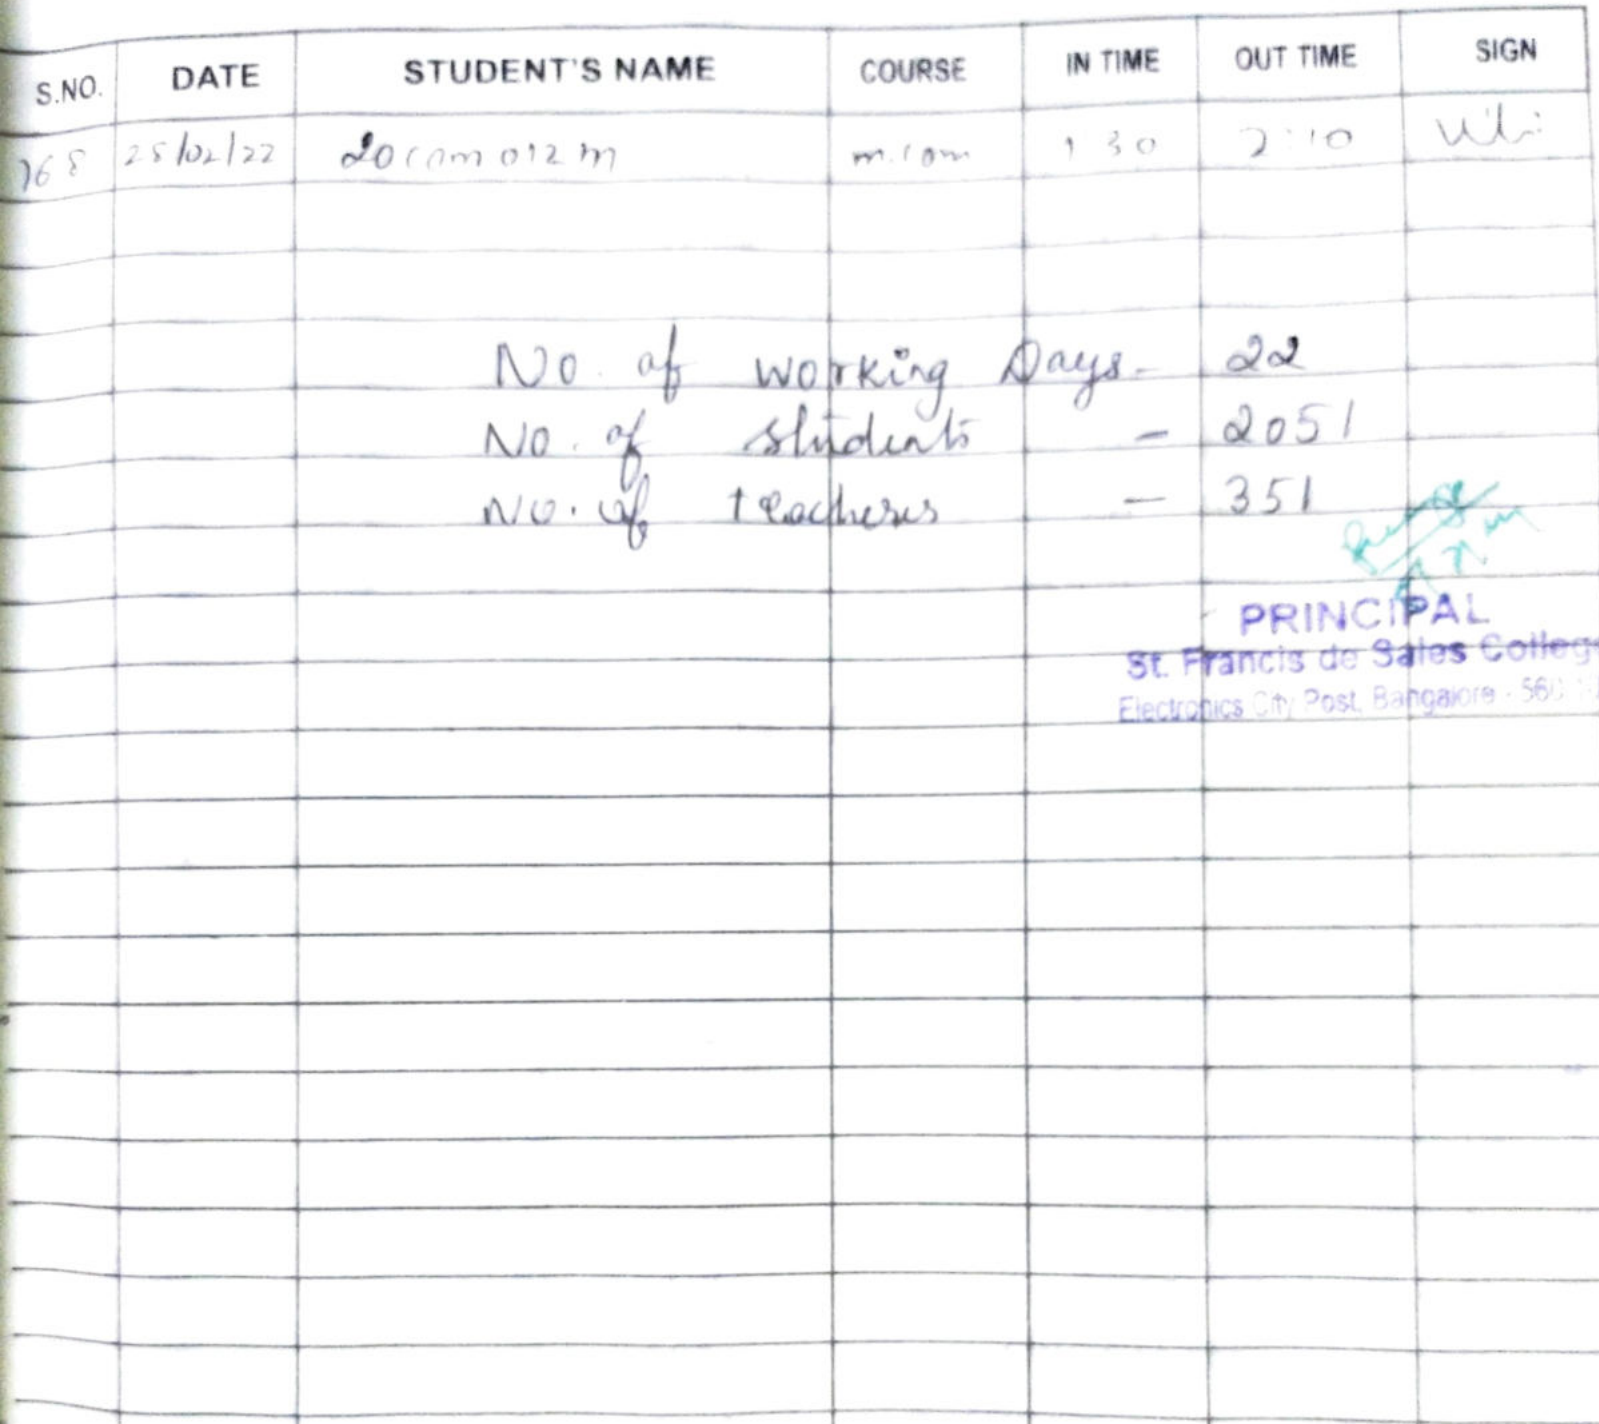 S.NO. DATE STUDENT'S NAME COURSE IN TIME OUT TIME SIGN
168 25/02/22 20com012m m.com 1 30 2:10
No. of working Days - 22
No. of students - 2051
No. of teachers - 351
PRINCIPAL
St. Francis de Sales College
Electronics City Post, Bangalore - 560